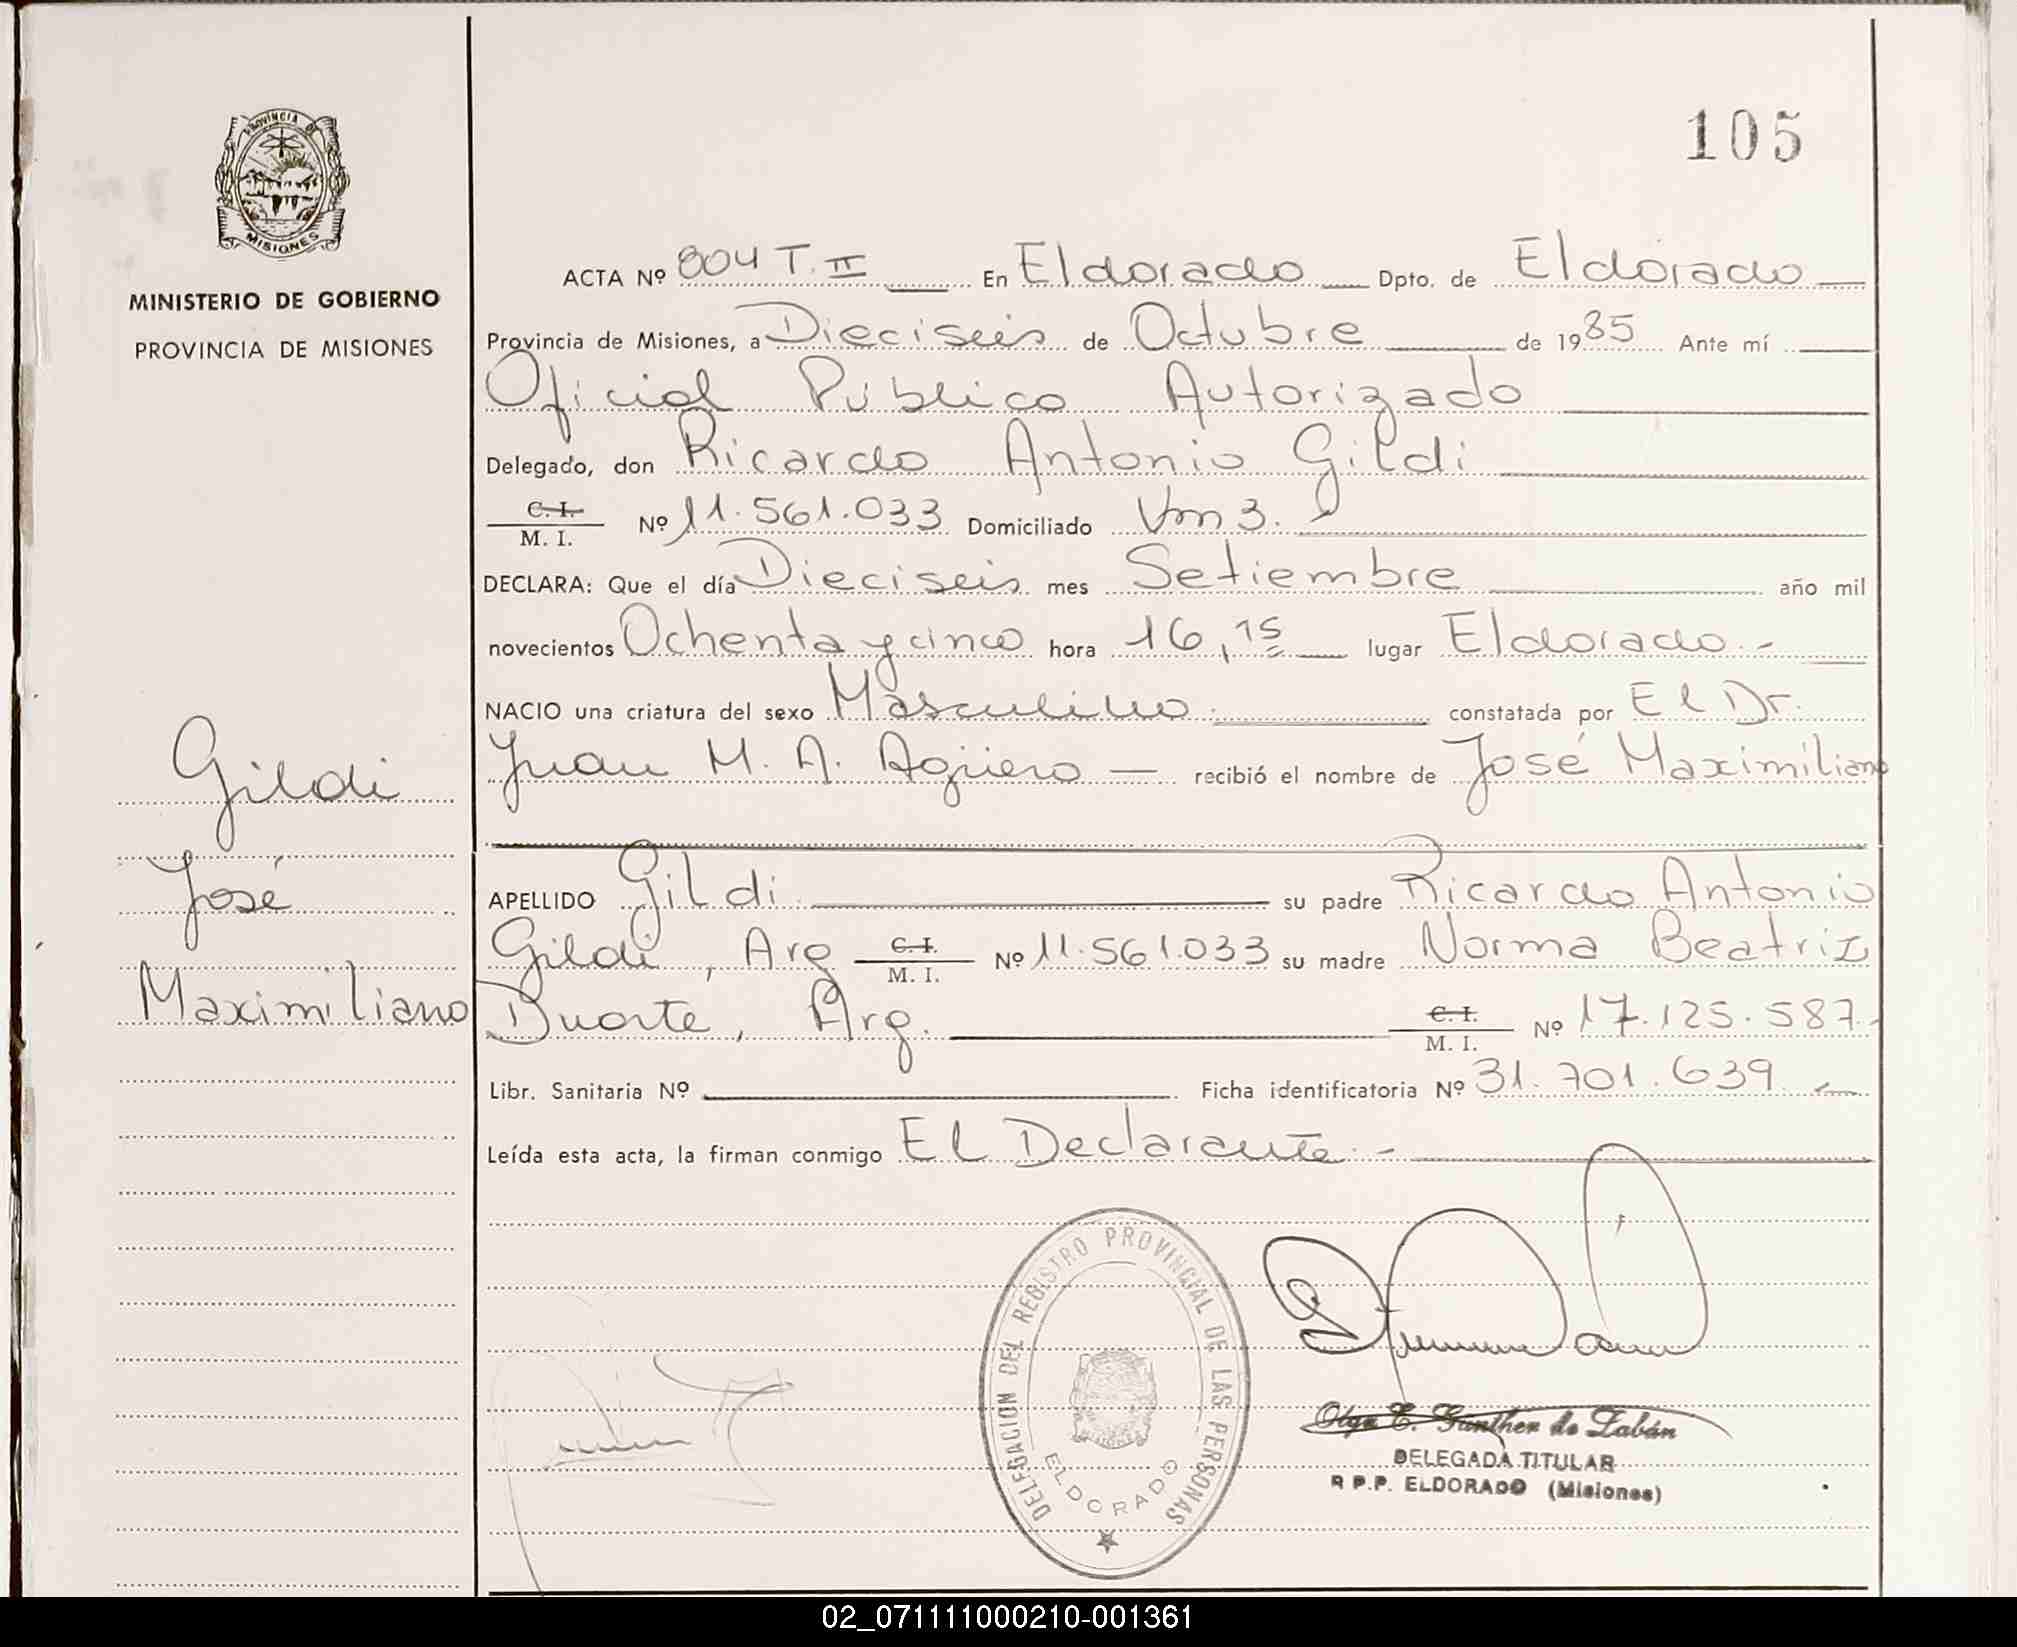 PROVINCIA DE
MISIONES
MINISTERIO DE GOBIERNO
PROVINCIA DE MISIONES
105
ACTA Nº 804 T. II En Eldorado Dpto. de Eldorado
Provincia de Misiones, a Dieciseis de Octubre de 1985 Ante mí
Oficial Público Autorizado
Delegado, don Ricardo Antonio Gildi
C. I.
M. I. Nº 11.561.033 Domiciliado Km 3.
DECLARA: Que el día Dieciseis mes Setiembre año mil
novecientos Ochenta y cinco hora 16,15 lugar Eldorado.-
NACIO una criatura del sexo Masculino constatada por El Dr.
Juan M. A. Agüero — recibió el nombre de José Maximiliano
Gildi
José
Maximiliano
APELLIDO Gildi su padre Ricardo Antonio
Gildi, Arg C. I.
M. I. Nº 11.561.033 su madre Norma Beatriz
Duarte, Arg. C. I.
M. I. Nº 17.125.587.-
Libr. Sanitaria Nº Ficha identificatoria Nº 31.701.639
Leída esta acta, la firman conmigo El Declarante.-
DELEGACION DEL REGISTRO PROVINCIAL DE LAS PERSONAS
ELDORADO
Olga E. Günther de Zabán
DELEGADA TITULAR
R P.P. ELDORADO (Misiones)
02_071111000210-001361